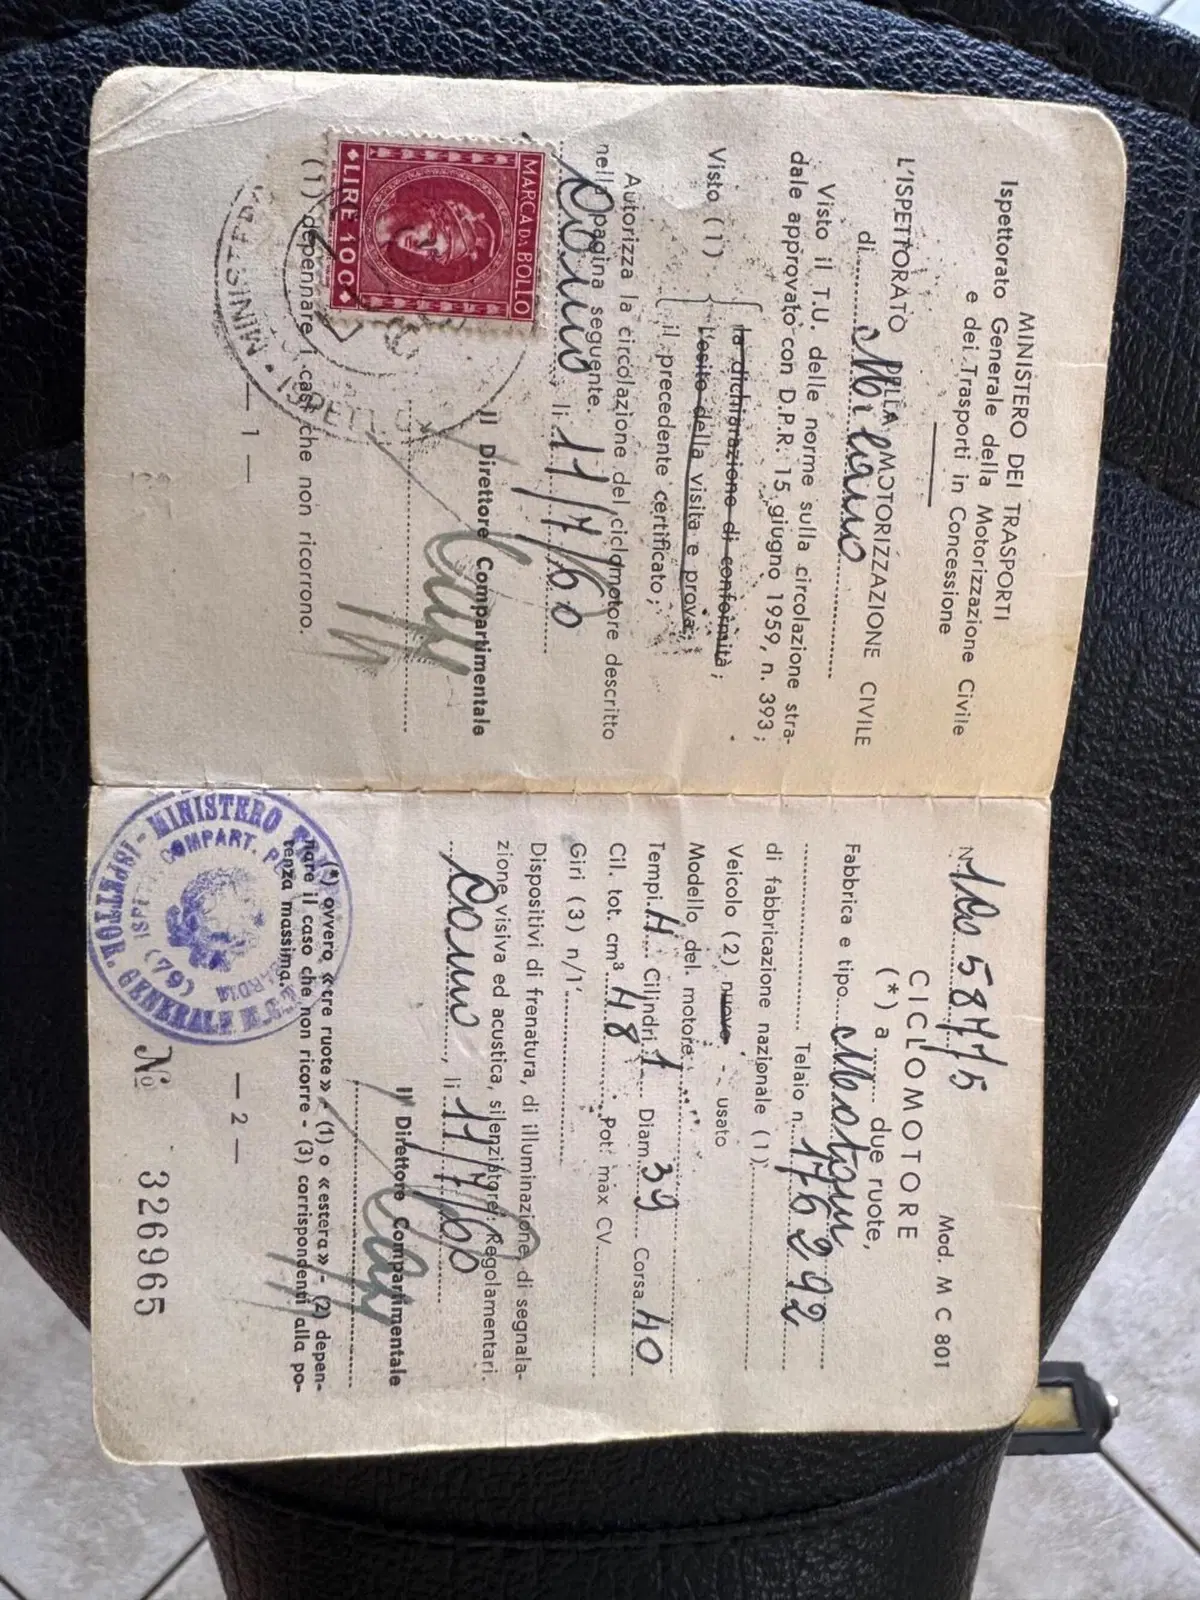 MINISTERO DEI TRASPORTI
Ispettorato Generale della Motorizzazione Civile
e dei Trasporti in Concessione
L'ISPETTORATO DELLA MOTORIZZAZIONE CIVILE
di Milano
Visto il T.U. delle norme sulla circolazione stra-
dale approvato con D.P.R. 15 giugno 1959, n. 393;
la dichiarazione di conformità;
Visto (1) l'esito della visita e prova;
il precedente certificato;
Autorizza la circolazione del ciclomotore descritto
nella pagina seguente.
Como, li 11/7/60
Il Direttore Compartimentale
MARCA DA BOLLO
LIRE 100
(1) depennare i casi che non ricorrono.
— 1 —
Mod. M C 801
N. 100 58775
CICLOMOTORE
(*) a due ruote,
Fabbrica e tipo Motom
Telaio n. 176292
di fabbricazione nazionale (1)
Veicolo (2) nuovo - usato
Modello del motore
Tempi 4 Cilindri 1 Diam. 39 Corsa 40
Cil. tot. cm³ 48 Pot. max CV
Giri (3) n/1'
Dispositivi di frenatura, di illuminazione, di segnala-
zione visiva ed acustica, silenziatore: Regolamentari.
Como, li 11/7/60
Il Direttore Compartimentale
(*) ovvero «tre ruote» - (1) o «estera» - (2) depen-
nare il caso che non ricorre - (3) corrispondenti alla po-
tenza massima.
— 2 —
MINISTERO
ISPETTOR. GENERALE
COMPART.
(79)
№ 326965